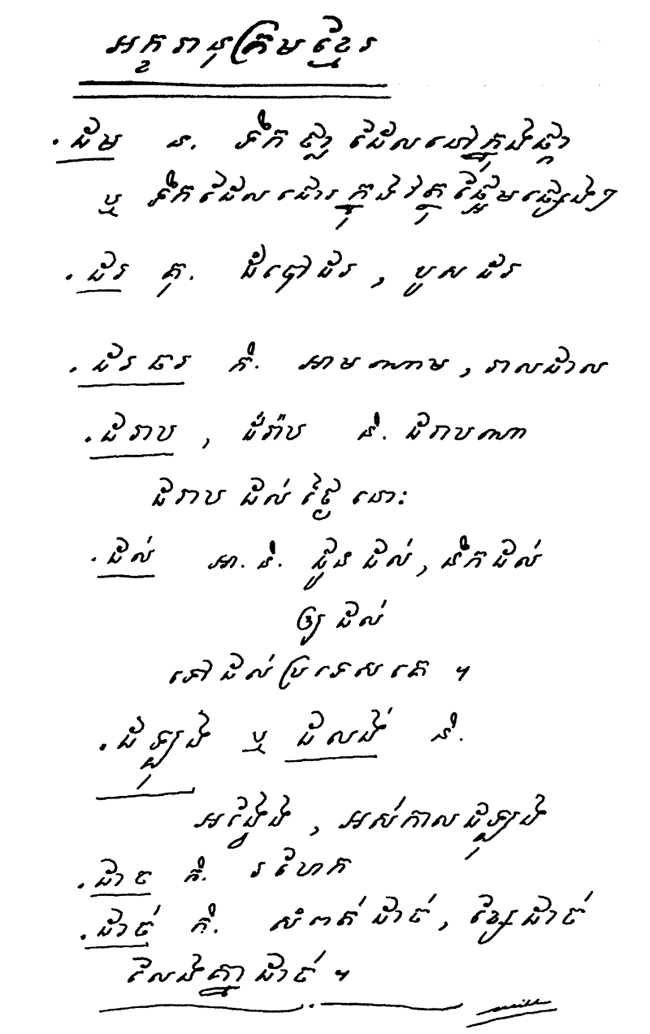 អក្ខរានុក្រមខ្មែរ
. ដម ន. ទឹកថ្លា ដែលនៅក្នុងផ្កា
ឬ ទឹកដែលដោរក្នុងវត្ថុផ្អែមផ្សេងៗ
. ដរ គុ. ដំបៅដរ , បួសដរ
. ដរថរ កិ. អាមណាម , រាលដាល
. ដរាប , ដ៏រាប និ. ដរាបណា
ដរាប ដល់ ថ្ងៃ នោះ
. ដល់ អា. និ. ជូនដល់ , នឹកដល់
ឲ្យ ដល់
ទៅ ដល់ ប្រទេស គេ ។
. ដឡុង ឬ ដលង់ និ.
អង្វែង , អស់កាលដឡុង
. ដាច កិ. រហែក
. ដាច់ កិ. សំពត់ដាច់ , ខ្សែដាច់
លែងគ្នាដាច់ ។